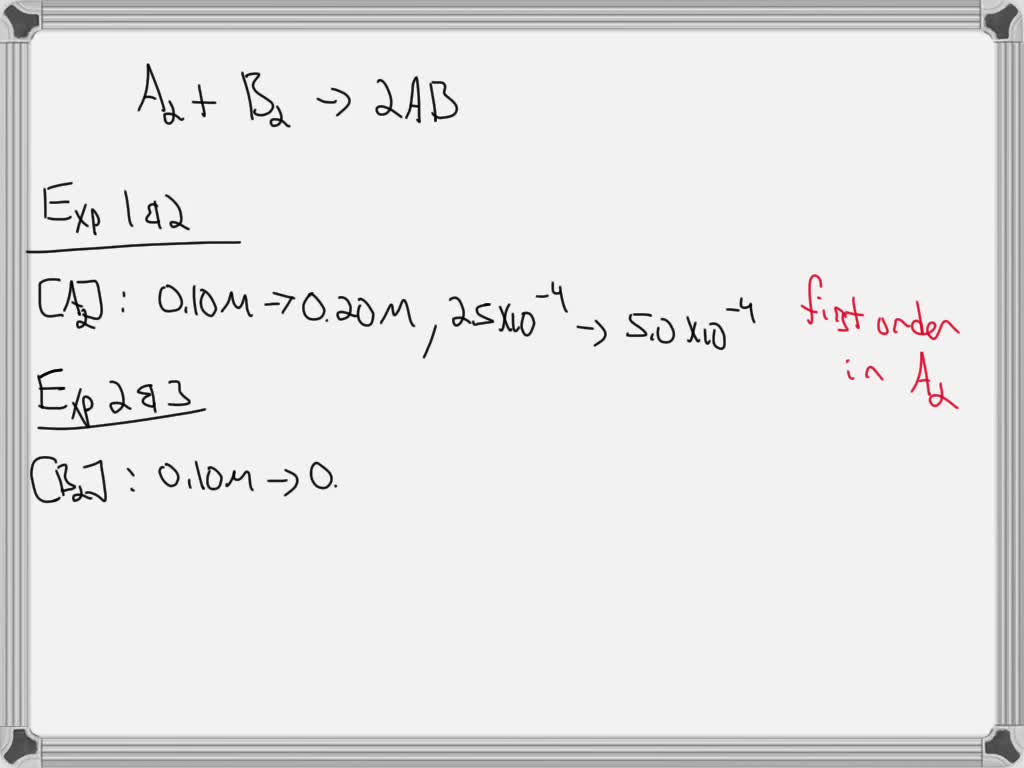 A₂ + B₂ → 2AB
Exp 1 & 2
[A₂] : 0.10M → 0.20M, 2.5 x10⁻⁴ → 5.0 x10⁻⁴
first order
in A₂
Exp 2 & 3
[B₂] : 0.10M → 0.